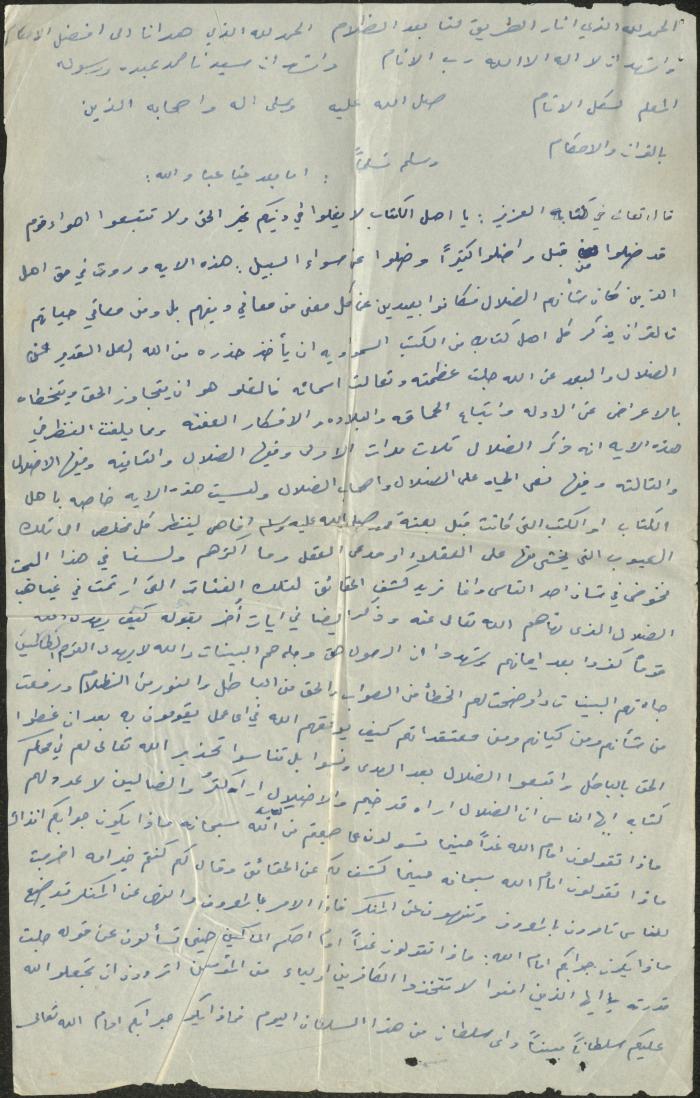 الحمد لله الذي انار الطريق لنا بعد الظلام الحمد لله الذي هدانا الى افضل الاحكام
واشهد ان لا اله الا الله رب الانام واشهد ان سيدنا محمد عبده ورسوله
المعلم لكل الانام صلى الله عليه وعلى اله واصحابه الذين
بالقران والاحكام
وسلم تسليماً : اما بعد فيا عباد الله :
قال تعالى في كتابه العزيز : يا اهل الكتاب لا تغلوا في دينكم غير الحق ولا تتبعوا اهواء قوم
قد ضلوا من قبل واضلوا كثيراً وضلوا عن سواء السبيل . هذه الايه وردت في حق اهل
الذين كان شأنهم الضلال فكانوا بعيدين عن كل معنى من معاني دينهم بل ومن معاني حياتهم
فالقران يذكر كل اهل كتاب من الكتب السماويه ان يأخذ حذره من الله العلي القدير عن
الضلال والبعد عن الله جلت عظمته وتعالت اسمائه فالغلو هو ان يتجاوز الحق ويتخطاه
بالاعراض عن الادله واتباع الحماقه والبلاده والافكار العفنه ومما يلفت النظر في
هذه الايه انه ذكر الضلال ثلاث مرات الاولى وفيها الضلال والثانيه وفيها الاضلال
والثالثه وفيها نعى الحياه على الضلال واصحاب الضلال وليست هذه الايه خاصه باهل
الكتاب او الكتب التي كانت قبل بعثة محمد صلى الله عليه وسلم انما هي لينظر كل مخلص الى تلك
العيوب التي يخشى منها على العقلاء او مدعي العقل وما اكثرهم ولسنا في هذا البحث
نخوض في شأن احد الناس وانما نريد كشف الحقائق لتلك الفئات التي ارتمت في غياهب
الضلال الذي نهاهم الله تعالى عنه وذكر ايضا في ايات أخر بقوله كيف يهدي الله
قوماً كفروا بعد ايمانهم وشهدوا ان الرسول حق وجاءهم البينات والله لا يهدي القوم الظالمين
جاءتهم البينات واوضحت لهم الخطأ من الصواب والحق من الباطل والنور من الظلام ورفعت
من شأنهم ومن كيانهم ومن معتقداتهم كيف يوفقهم الله في اي عمل يقومون به بعد ان غطوا
الحق بالباطل واتبعوا الضلال بعد الهدى ونسوا بل تناسوا تحذير الله تعالى لهم في محكم
كتابه ايها الناس ان الضلال اراه قد خيم والاضلال اراه كثر والضالين لا عدد لهم
ماذا تقولون امام الله غداً حينما تسألون عما جاءكم من الله سبحانه ماذا يكون جوابكم انذاك
ماذا تقولون امام الله سبحانه حينما كشف لكم عن الحقائق وقال لكم كنتم خير امه اخرجت
للناس تأمرون بالمعروف وتنهون عن المنكر فاذا الامر بالمعروف والنهي عن المنكر قد ضيع
ماذا يكون جوابكم امام الله : ماذا تقولون غداً امام احكم الحاكمين حينما تسألون عن قوله جلت
قدرته يا ايها الذين امنوا لا تتخذوا الكافرين اولياء من المؤمنين اتريدون ان تجعلوا لله
عليكم سلطاناً مبيناً واي سلطان من هذا السلطان اليوم فماذا يكون جوابكم امام الله تعالى